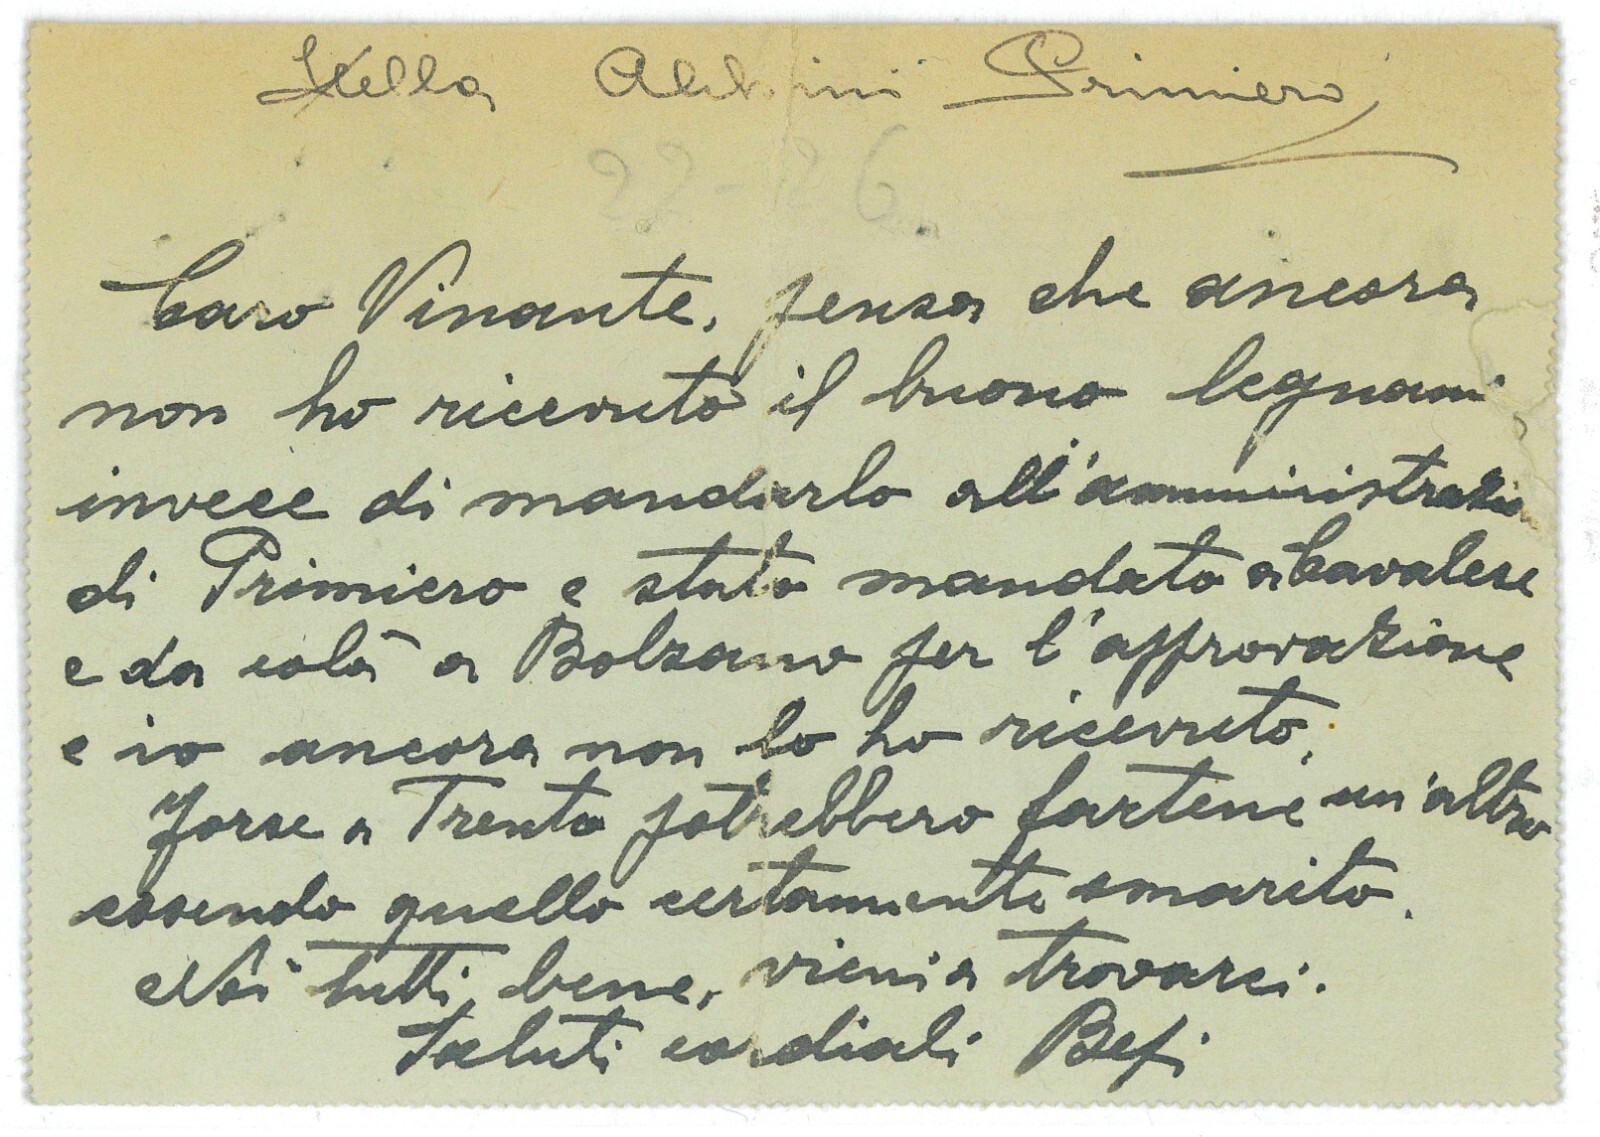 Stella Primiero
22-26
Caro Vinante, pensa che ancora
non ho ricevuto il buono legnami
invece di mandarlo all'amministrazio
di Primiero e stato mandato a Cavalese
e da colà a Bolzano per l'approvazione
e io ancora non lo ho ricevuto.
Forse a Trento potrebbero fartene un'altro
essendo quello certamente smarito.
Noi tutti bene, vieni a trovarci.
Saluti cordiali Bepi